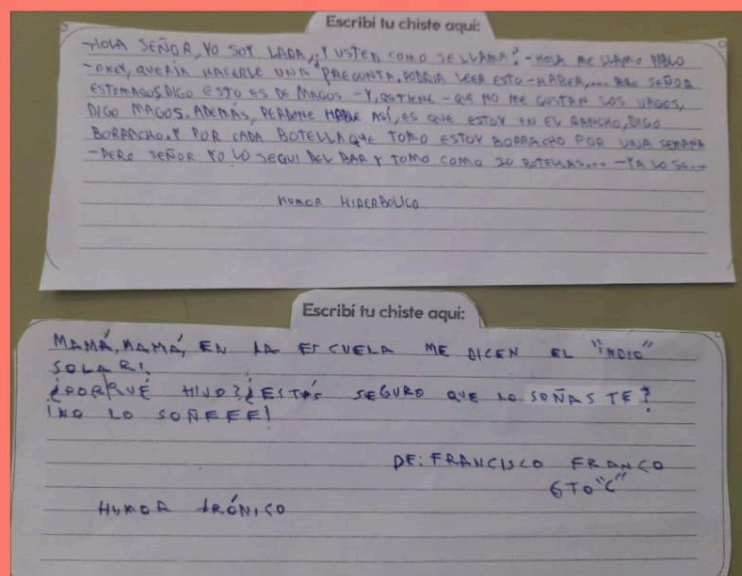 Escribí tu chiste aquí:
-HOLA SEÑOR, YO SOY LARA, ¿Y USTED COMO SE LLAMA? - HOLA ME LLAMO PABLO
-OKEY, QUERIA HACERLE UNA PREGUNTA. PODRIA LEER ESTO - HABER,... SEÑOR
ESTOMAGOS, DIGO ESTO ES DE MAGOS - Y, QTIENE - QUE NO ME GUSTAN LOS VAGOS,
DIGO MAGOS. ADEMÁS, PERDONE HABLE ASÍ, ES QUE ESTOY EN EL RANCHO, DIGO
BORRACHO. Y POR CADA BOTELLA QUE TOMO ESTOY BORRACHO POR UNA SEMANA
-PERO SEÑOR YO LO SEGUI DEL BAR Y TOMO COMO 20 BOTELLAS... - YA LO SE...
HUMOR HIPERBOLICO
Escribí tu chiste aquí:
MAMÁ, MAMÁ, EN LA ESCUELA ME DICEN EL "INDIO"
SOLARI.
¿PORQUÉ HIJO? ¿ESTÁS SEGURO QUE LO SOÑASTE?
¡NO LO SOÑEEE!
DE: FRANCISCO FRANCO
6TO "C"
HUMOR IRÓNICO